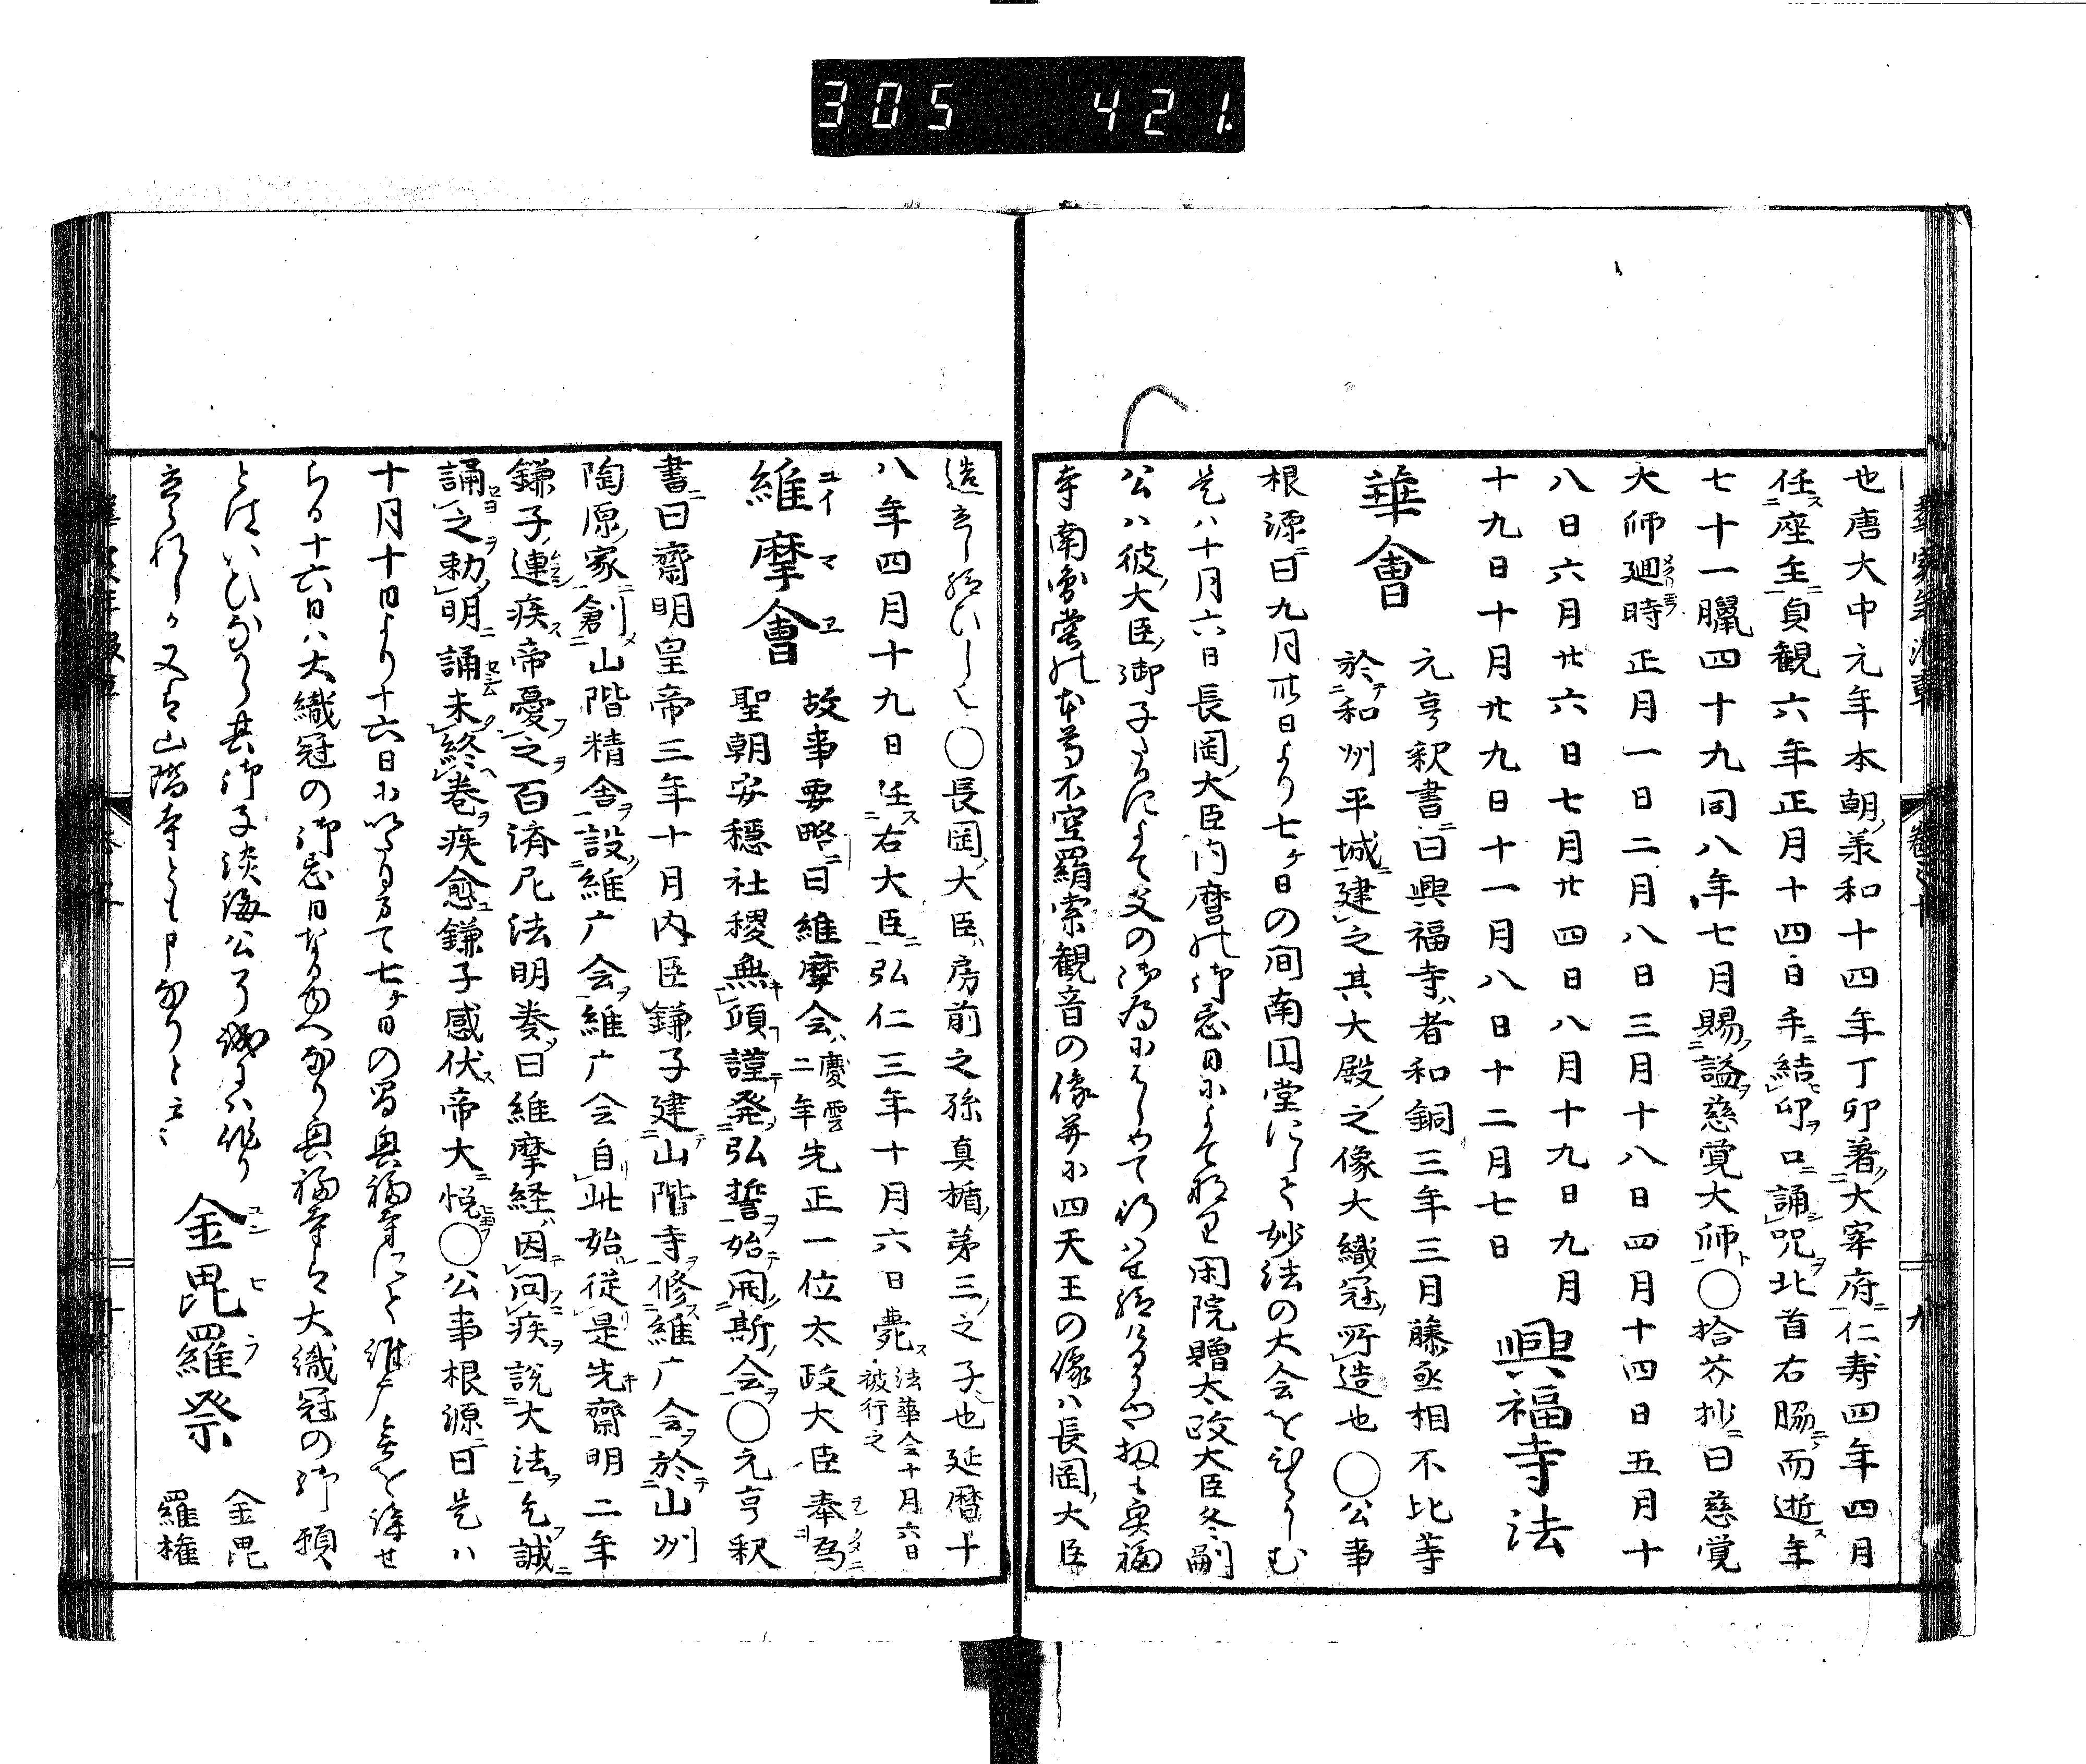 305 421.
也唐大中元年本朝承和十四年丁卯著大宰府仁寿四年四月
任座主貞観六年正月十四日手結印口誦呪北首右脇而逝年
七十一臘四十九同八年七月賜謚慈覚大師〇拾芥抄曰慈覚
大師廻時正月一日二月八日三月十八日四月十四日五月十
八日六月廿六日七月廿四日八月十九日九月
十九日十月廿九日十一月八日十二月七日
興福寺法
華會
元亨釈書曰興福寺者和銅三年三月藤丞相不比等
於和州平城建之其大殿之像大織冠所造也〇公事
根源曰九月卅日より七ヶ日の間南円堂にして妙法の大会を
是ハ十月六日長岡大臣内麿の御忌日によて閑院贈太政大臣冬嗣
公ハ彼大臣御子なるによて父の御為に興福
寺南円堂の本尊不空羂索観音の像并に四天王の像ハ長岡大臣
造立し給ひし也〇長岡大臣房前之孫真楯第三之子也延暦十
八年四月十九日任右大臣弘仁三年十月六日薨法華会十月六日被行之
維摩會
ユイマヱ
故事要略曰維摩会慶雲二年先正一位太政大臣奉為
聖朝安穏社稷無傾謹発弘誓始開斯会〇元亨釈
書曰齋明皇帝三年十月内臣鎌子建山階寺修維广会於山州
陶原家創山階精舎設維广会維广会自此始従是先齋明二年
鎌子連疾帝憂之百済尼法明奏曰維摩経因問疾説大法乞誠
誦之勅明誦未終巻疾愈鎌子感伏帝大悦〇公事根源曰是ハ
十月十日より十六日にいたるまて七ヶ日の間興福寺にして維广会を講せ
らる十六日ハ大織冠の御忌日なるゆへなり興福寺は大織冠の御願
とはいひながら其御子淡海公
又は山階寺とも申なりと云々
金毘羅祭
コンヒラ
金毘
羅権